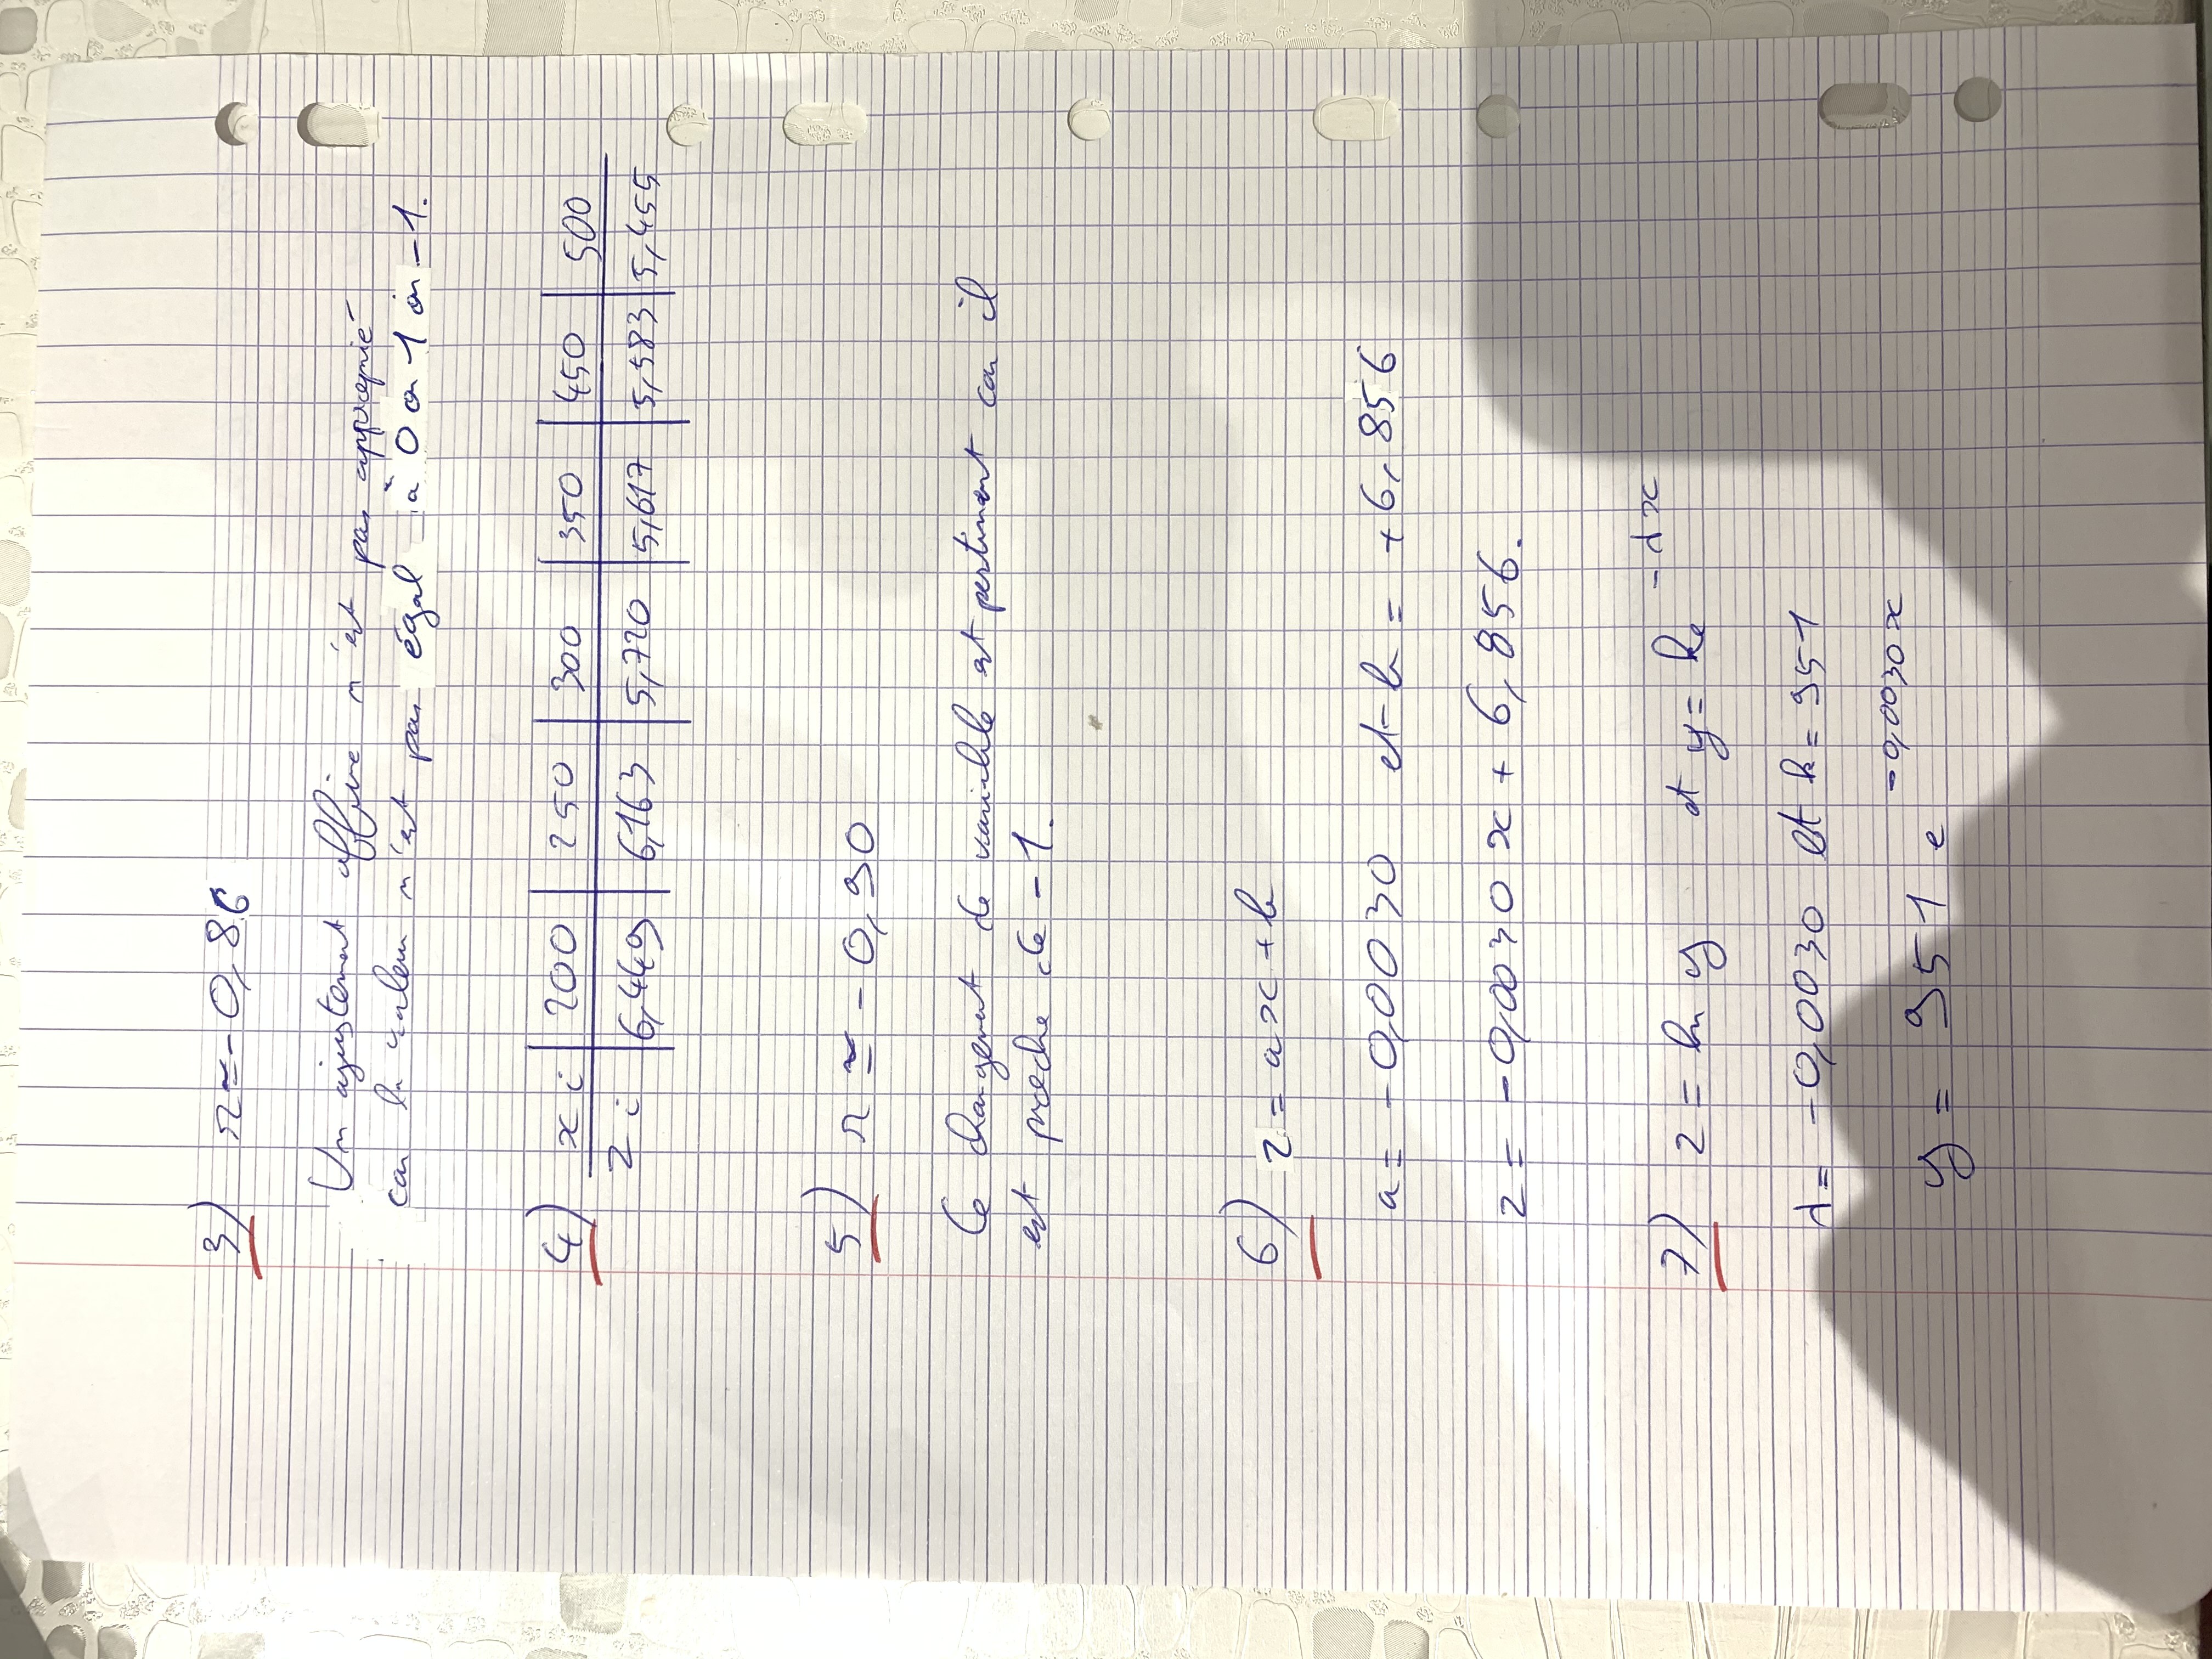 3) r ≃ - 0,86
Un ajustement affine n'est pas approprié
car la valeur n'est pas égal à 0 ou 1 ou -1.
4) xi 200 250 300 350 450 500
zi 6,449 6,163 5,720 5,617 5,583 5,455
5) r ≃ - 0,90
Ce changement de variable est pertinent car il
est proche de -1.
6) z = ax + b
a = -0,0030 et b = +6,856
z = -0,0030 x + 6,856.
7) z = ln y et y = ke^-λx
λ = -0,0030 et k = 951
y = 951 e^-0,0030x